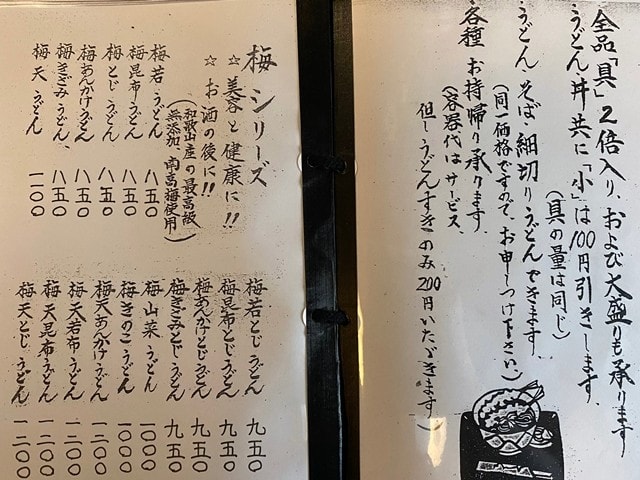 全品「具」2倍入り、および大盛りも承ります
うどん、丼共に「小」は100円引きします、
(具の量は同じ)
うどん、そば、細切りうどんできます、
(同一価格ですので、お申しつけ下さい)
各種お持帰り承ります、
(容器代はサービス、
但しうどんすきのみ200円いただきます)
梅シリーズ
☆美容と健康に!!
☆お酒の後に!!
(和歌山産の最高級
無添加、南高梅使用)
梅若うどん 八五〇
梅昆布うどん 八五〇
梅とじうどん 八五〇
梅あんかけうどん 八五〇
梅きざみうどん、 八五〇
梅天うどん 一一〇〇
梅若とじうどん 九五〇
梅昆布とじうどん 九五〇
梅あんかけとじうどん 九五〇
梅きざみとじうどん 九五〇
梅山菜うどん 一〇〇〇
梅きのこうどん 一〇〇〇
梅天あんかけうどん 一二〇〇
梅天若布うどん 一二〇〇
梅天昆布うどん 一二〇〇
梅天とじうどん 一二〇〇